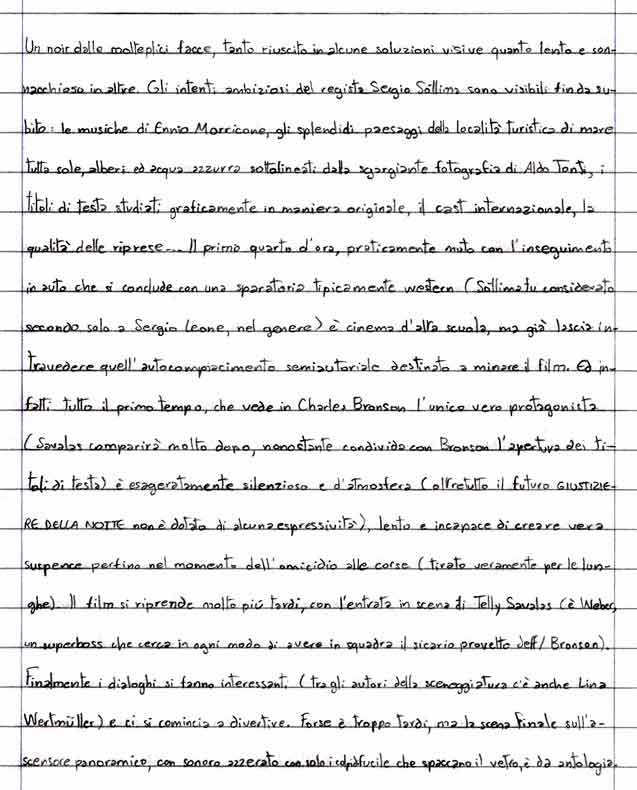 Un noir dalle molteplici facce, tanto riuscito in alcune soluzioni visive quanto lento e son-
nacchioso in altre. Gli intenti ambiziosi del regista Sergio Sollima sono visibili fin da su-
bito: le musiche di Ennio Morricone, gli splendidi paesaggi della località turistica di mare
tutta sole, alberi ed acqua azzurra sottolineati dalla sgargiante fotografia di Aldo Tonti, i
titoli di testa studiati graficamente in maniera originale, il cast internazionale, la
qualità delle riprese... Il primo quarto d'ora, praticamente muto con l'inseguimento
in auto che si conclude con una sparatoria tipicamente western (Sollima fu considerato
secondo solo a Sergio Leone, nel genere) è cinema d'alta scuola, ma già lascia in-
travedere quell'autocompiacimento semiautoriale destinato a minare il film. Ed in-
fatti tutto il primo tempo, che vede in Charles Bronson l'unico vero protagonista
(Savalas comparirà molto dopo, nonostante condivida con Bronson l'apertura dei ti-
toli di testa) è esageratamente silenzioso e d'atmosfera (oltretutto il futuro GIUSTIZIE-
RE DELLA NOTTE non è dotato di alcuna espressività), lento e incapace di creare vera
suspence perfino nel momento dell'omicidio alle corse (tirato veramente per le lun-
ghe). Il film si riprende molto più tardi, con l'entrata in scena di Telly Savalas (è Weber,
un superboss che cerca in ogni modo di avere in squadra il sicario provetto Jeff/Bronson).
Finalmente i dialoghi si fanno interessanti (tra gli autori della sceneggiatura c'è anche Lina
Wertmüller) e ci si comincia a divertire. Forse è troppo tardi, ma la scena finale sull'a-
scensore panoramico, con sonoro azzerato con solo i colpi di fucile che spaccano il vetro, è da antologia.